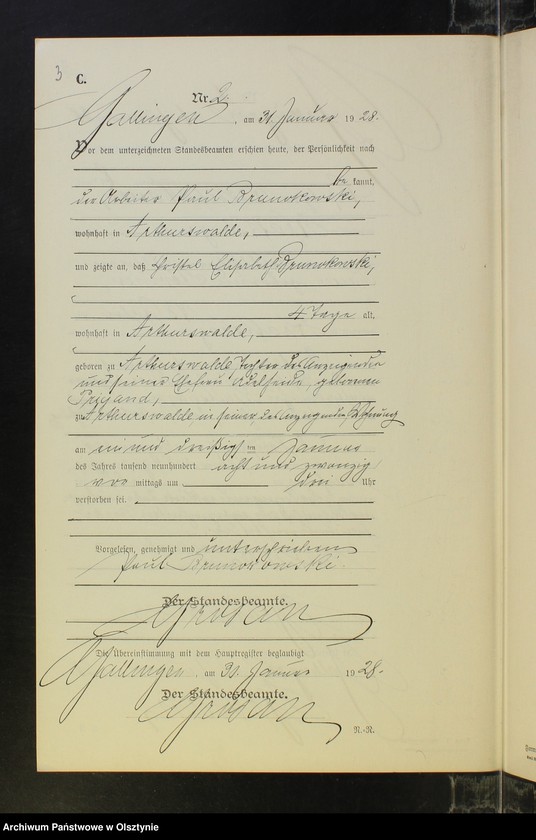 3 C.
Nr. 2.
Gallingen, am 31. Januar 1928.
Vor dem unterzeichneten Standesbeamten erschien heute, der Persönlichkeit nach
be kannt,
der Arbeiter Paul Brunokowski,
wohnhaft in Arthurswalde,
und zeigte an, daß Christel Elisabeth Brunokowski,
4 Tage alt,
wohnhaft in Arthurswalde,
geboren zu Arthurswalde Tochter des Anzeigenden
und seiner Ehefrau Adelheide, geborenen
zu Arthurswalde, in seiner des Anzeigenden Wohnung
am ein und dreißigsten Januar
des Jahres tausend neunhundert acht und zwanzig
vor mittags um drei Uhr
verstorben sei.
Vorgelesen, genehmigt und unterschrieben
Paul Brunokowski
Der Standesbeamte.
Die Übereinstimmung mit dem Hauptregister beglaubigt
Gallingen, am 31. Januar 1928.
Der Standesbeamte.
N.-R.
Archiwum Państwowe w Olsztynie